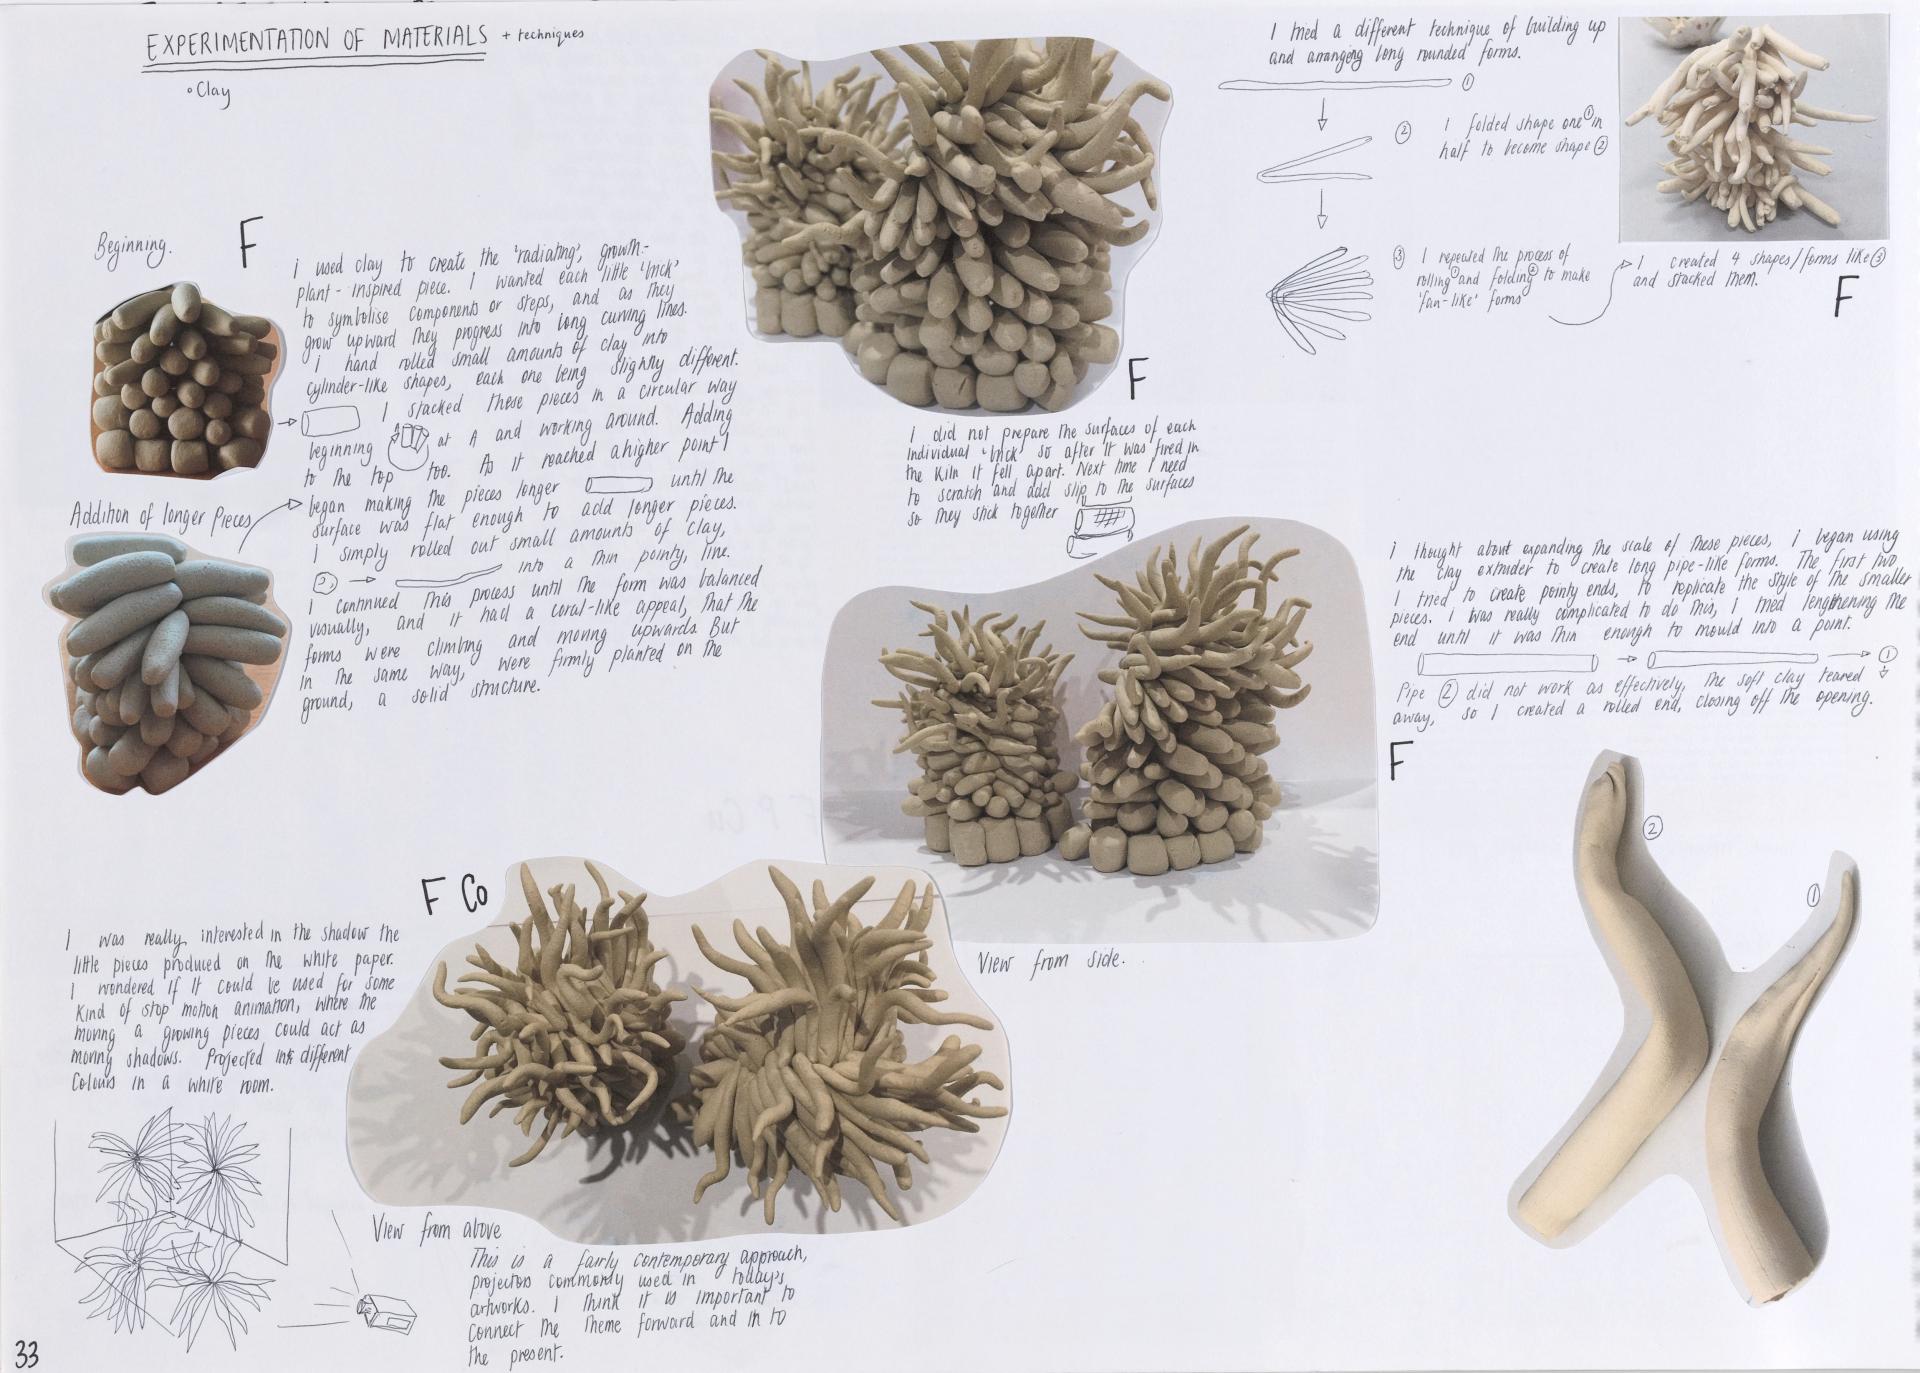 EXPERIMENTATION OF MATERIALS + techniques
• Clay
Beginning.
F
I used clay to create the 'radiating', growth-
plant-inspired piece. I wanted each little 'brick'
to symbolise components or steps, and as they
grow upward they progress into long curving lines.
I hand rolled small amounts of clay into
cylinder-like shapes, each one being slightly different.
I stacked these pieces in a circular way
beginning A at A and working around. Adding
to the top too. As it reached a higher point I
began making the pieces longer until the
surface was flat enough to add longer pieces.
I simply rolled out small amounts of clay,
into a thin pointy, line.
I continued this process until the form was balanced
visually, and it had a coral-like appeal, that the
forms were climbing and moving upwards. But
in the same way, were firmly planted on the
ground, a solid structure.
Addition of longer pieces
F
I did not prepare the surfaces of each
individual 'brick' so after it was fired in
the kiln it fell apart. Next time I need
to scratch and add slip to the surfaces
so they stick together
I tried a different technique of building up
and arranging long rounded forms.
①
②
I folded shape one ① in
half to become shape ②
③
I repeated the process of
rolling ① and folding ② to make
'fan-like' forms
I created 4 shapes/forms like ③
and stacked them.
F
I thought about expanding the scale of these pieces, I began using
the clay extruder to create long pipe-like forms. The first two
I tried to create pointy ends, to replicate the style of the smaller
pieces. I was really complicated to do this, I tried lengthening the
end until it was thin enough to mould into a point.
①
Pipe ② did not work as effectively, the soft clay teared
away, so I created a rolled end, closing off the opening.
F
②
①
View from side.
F Co
I was really interested in the shadow the
little pieces produced on the white paper.
I wondered if it could be used for some
kind of stop motion animation, where the
moving a growing pieces could act as
moving shadows. Projected into different
colours in a white room.
View from above
This is a fairly contemporary approach,
projectors commonly used in today's
artworks. I think it is important to
connect the theme forward and in to
the present.
33